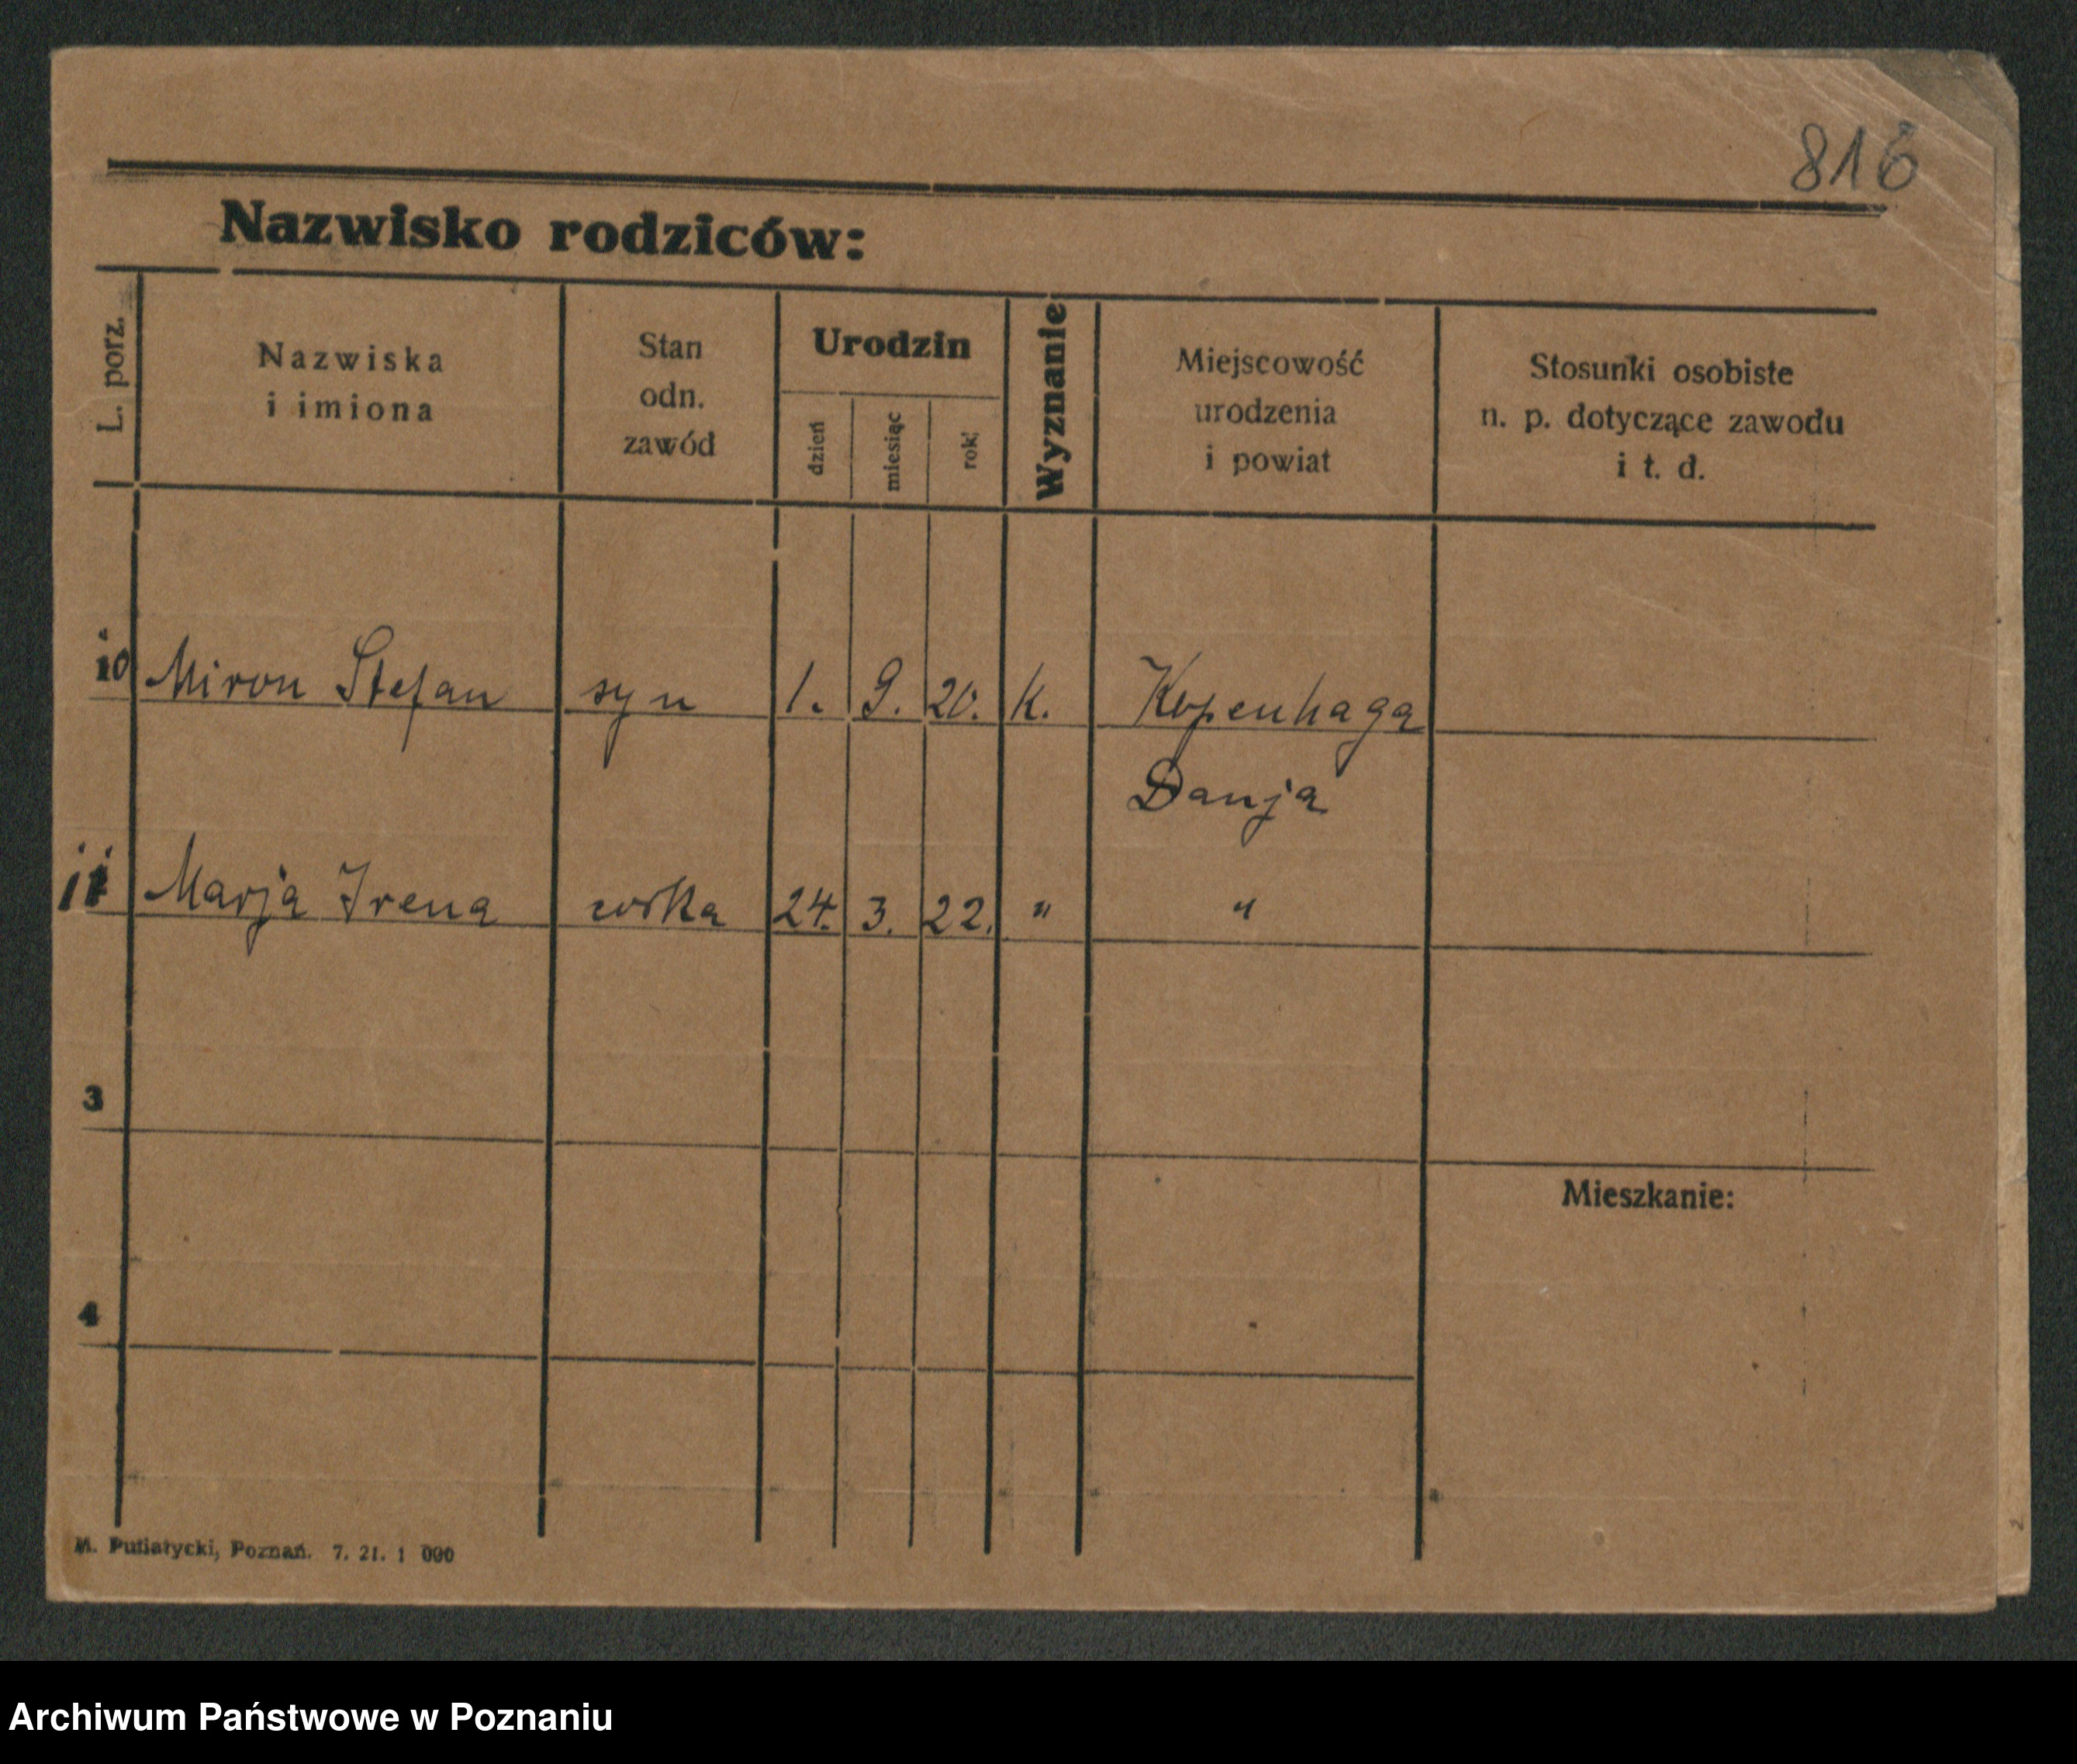 816
Nazwisko rodziców:
L. porz.
Nazwiska
i imiona
Stan
odn.
zawód
Urodzin
dzień
miesiąc
rok
Wyznanie
Miejscowość
urodzenia
i powiat
Stosunki osobiste
n. p. dotyczące zawodu
i t. d.
10 Miron Stefan syn 1. 9. 20. K. Kopenhaga
Danja
11 Marja Irena córka 24. 3. 22. " "
3
Mieszkanie:
4
M. Putiatycki, Poznań. 7. 21. 1 000
Archiwum Państwowe w Poznaniu